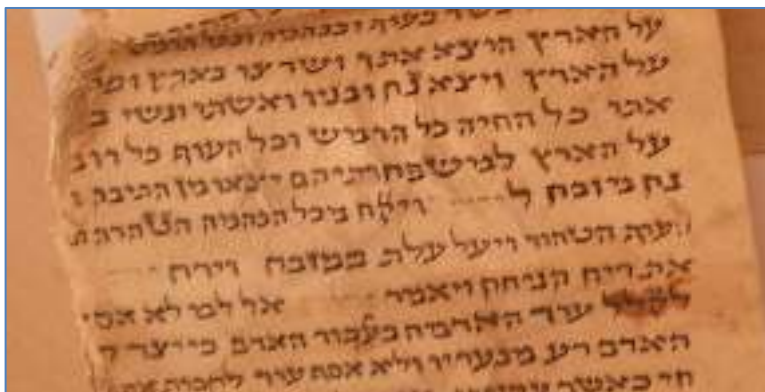 בשר בעוף ובבהמה ובכל הרמש
על הארץ הוצא אתך ושרצו בארץ ופרו
על הארץ ויצא נח ובניו ואשתו ונשי ב
אתו כל החיה כל הרמש וכל העוף כל רומ
על הארץ למשפחותיהם יצאו מן התיבה ו
נח מזבח ל ויקח מכל הבהמה הטהרה
העוף הטהור ויעל עלת במזבח וירח
את ריח הניחח ויאמר אל לבו לא אסף
לקלל עוד האדמה בעבור האדם כי יצר ל
האדם רע מנעריו ולא אסף עוד להכות את
חי כאשר